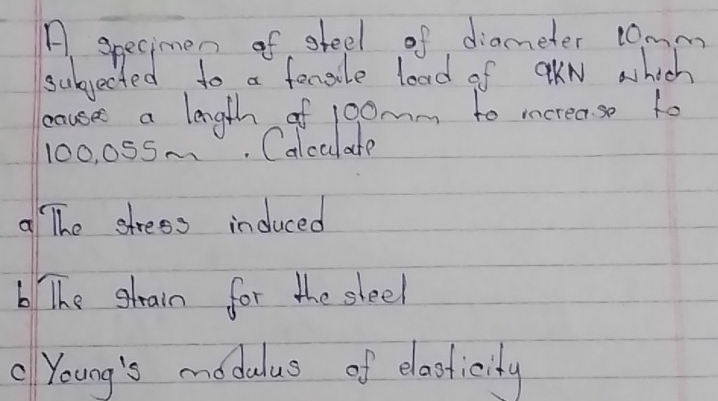 A specimen of steel of diameter 10mm
subjected to a tensile load of 9KN which
causes a length of 100mm to increase to
100,055m . Calculate
a The stress induced
b The strain for the steel
c Young's modulus of elasticity